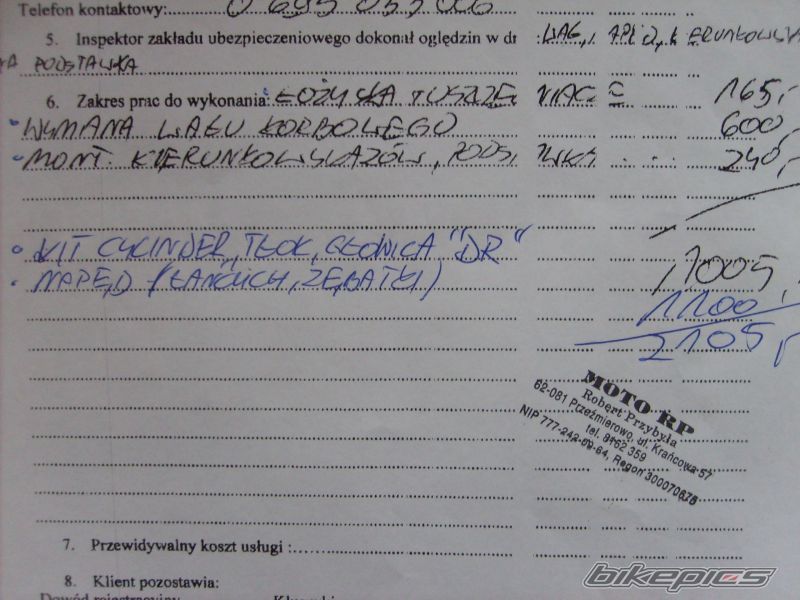 Telefon kontaktowy: 0 695 053 006
5. Inspektor zakładu ubezpieczeniowego dokonał oględzin w dr
PODSTAWKA
6. Zakres prac do wykonania: ŁOŻYSKA 165,-
WYMIANA WAŁU KORBOWEGO 600,-
MONT. KIERUNKOWSKAZÓW, PODS. 240,-
KIT CYLINDER, TŁOK, GŁOWICA "DR"
1005,-
NAPĘD (ŁAŃCUCH, ZĘBATKI)
1100
2105,-
MOTO RP
Robert Przybyła
62-081 Przeźmierowo, ul. Krańcowa 57
tel. 8162 359
NIP 777-242-69-64, Regon 300070675
7. Przewidywalny koszt usługi :
8. Klient pozostawia:
Dowód rejestracyjny Kluczyki
bikepics